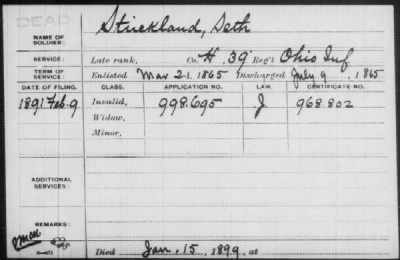 DEAD
NAME OF SOLDIER: Strickland, Seth
SERVICE: Late rank, Co. H. 39 Reg't Ohio Inf
TERM OF SERVICE: Enlisted Mar 21. 1865 Discharged July 9, 1865
DATE OF FILING. CLASS. APPLICATION NO. LAW. CERTIFICATE NO.
1891 Feb. 9 Invalid, 998.695 J. 968.802
Widow,
Minor,
ADDITIONAL SERVICES:
REMARKS:
Died Jan. 15, 1899, at